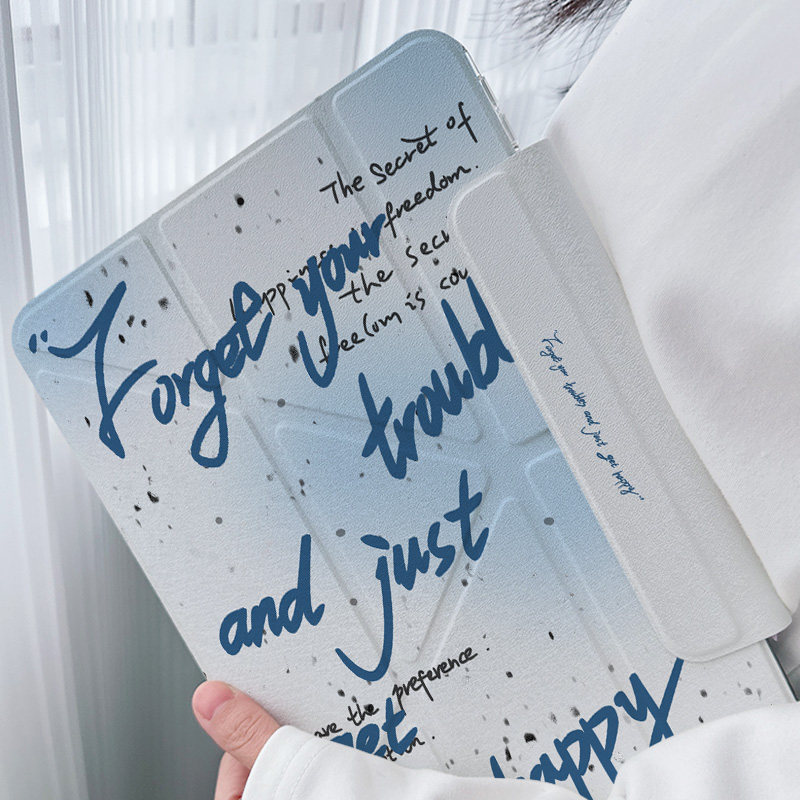 The Secret of
freedom.
the secr
freedom is cou
"Forget your
troubl
and just
get happy
are the preference.
Forget your troubles and just get happy"